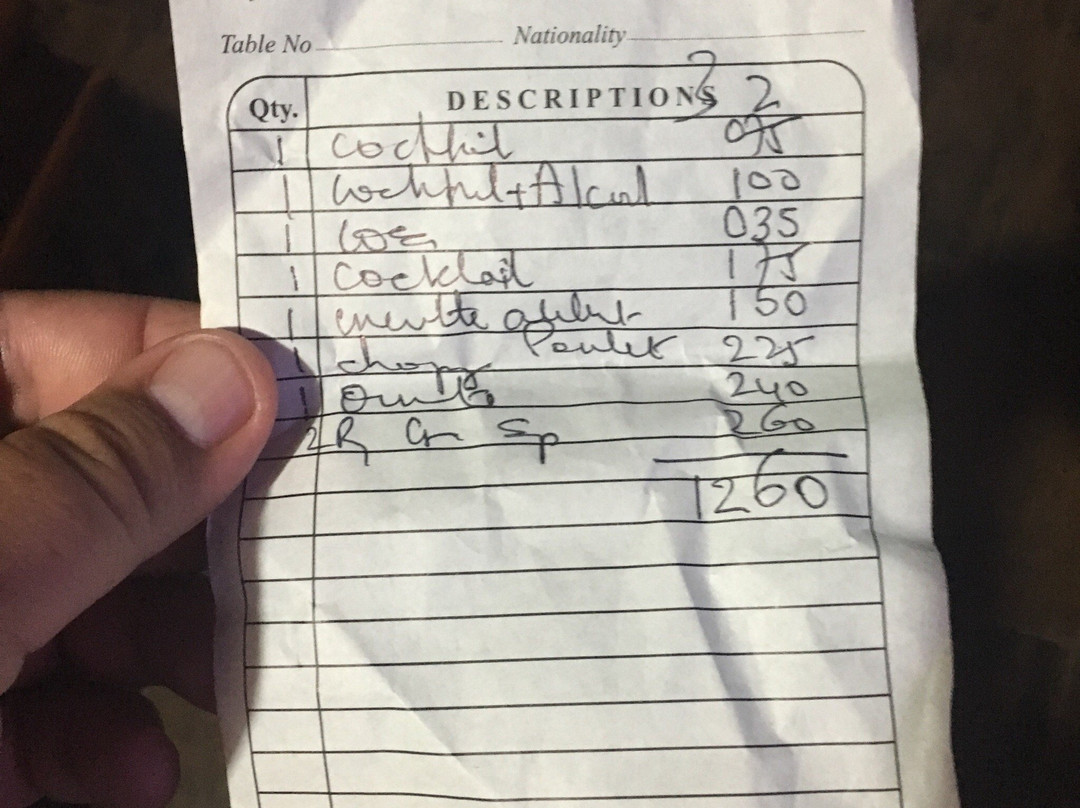 Table No Nationality
3 2
Qty. DESCRIPTIONS
1 cocktail 075
1 Cocktail + Alcool 100
1 035
1 cocktail 175
1 150
1 Poulet 225
1 240
2 R Cr Sp 260
1260